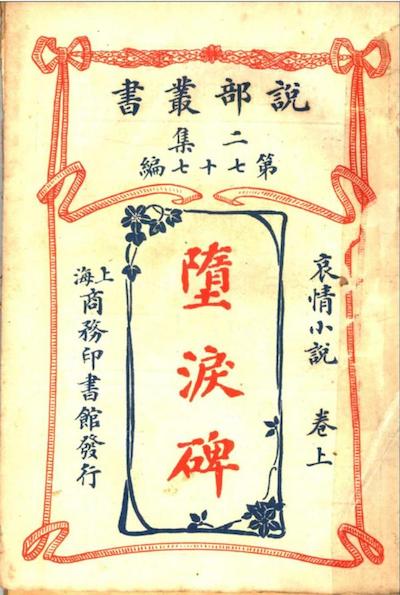 說部叢書
二集
第七十七編
哀情小說 卷上
墮淚碑
上海
商務印書館發行